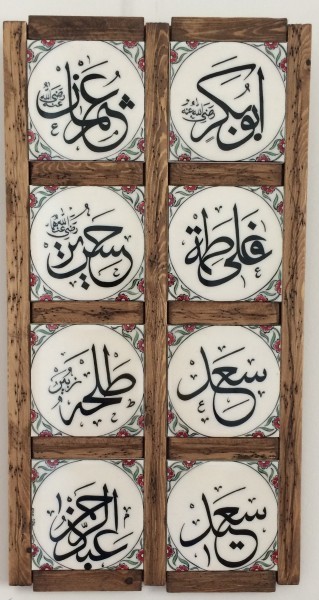 ابوبكر رضي الله عنه
عثمان رضي الله عنه
فاطمة على
حسين رضي الله عنهما
سعد
طلحه زبير
سعيد
عبدالرحمن